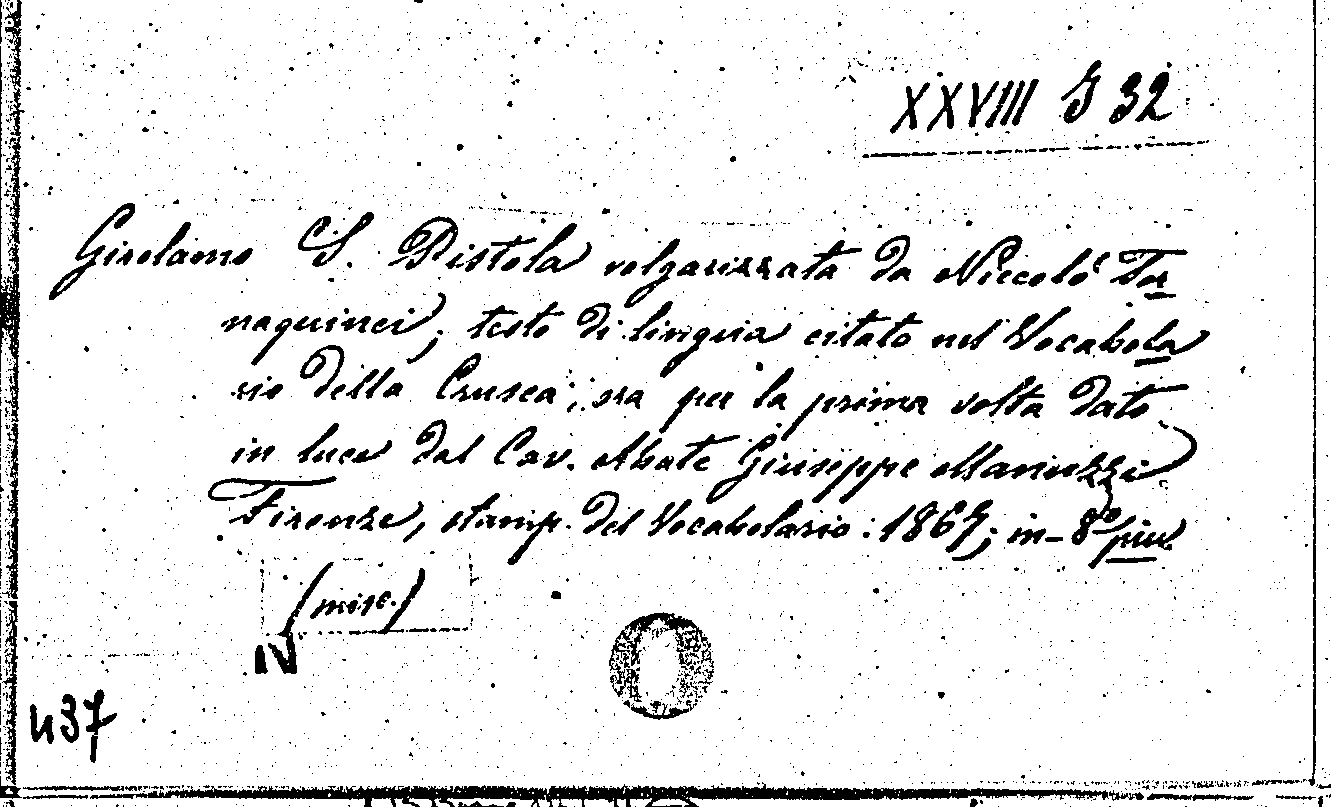 XXVIII G 32
Girolamo S. Pistola volgarizzata da Niccolò Tor
naquinci; testo di lingua citato nel Vocabola
rio della Crusca; ora per la prima volta dato
in luce dal Cav. Abate Giuseppe Manuzzi
Firenze, stamp. del Vocabolario: 1867; in-8º piu.
(misc.)
IV
437